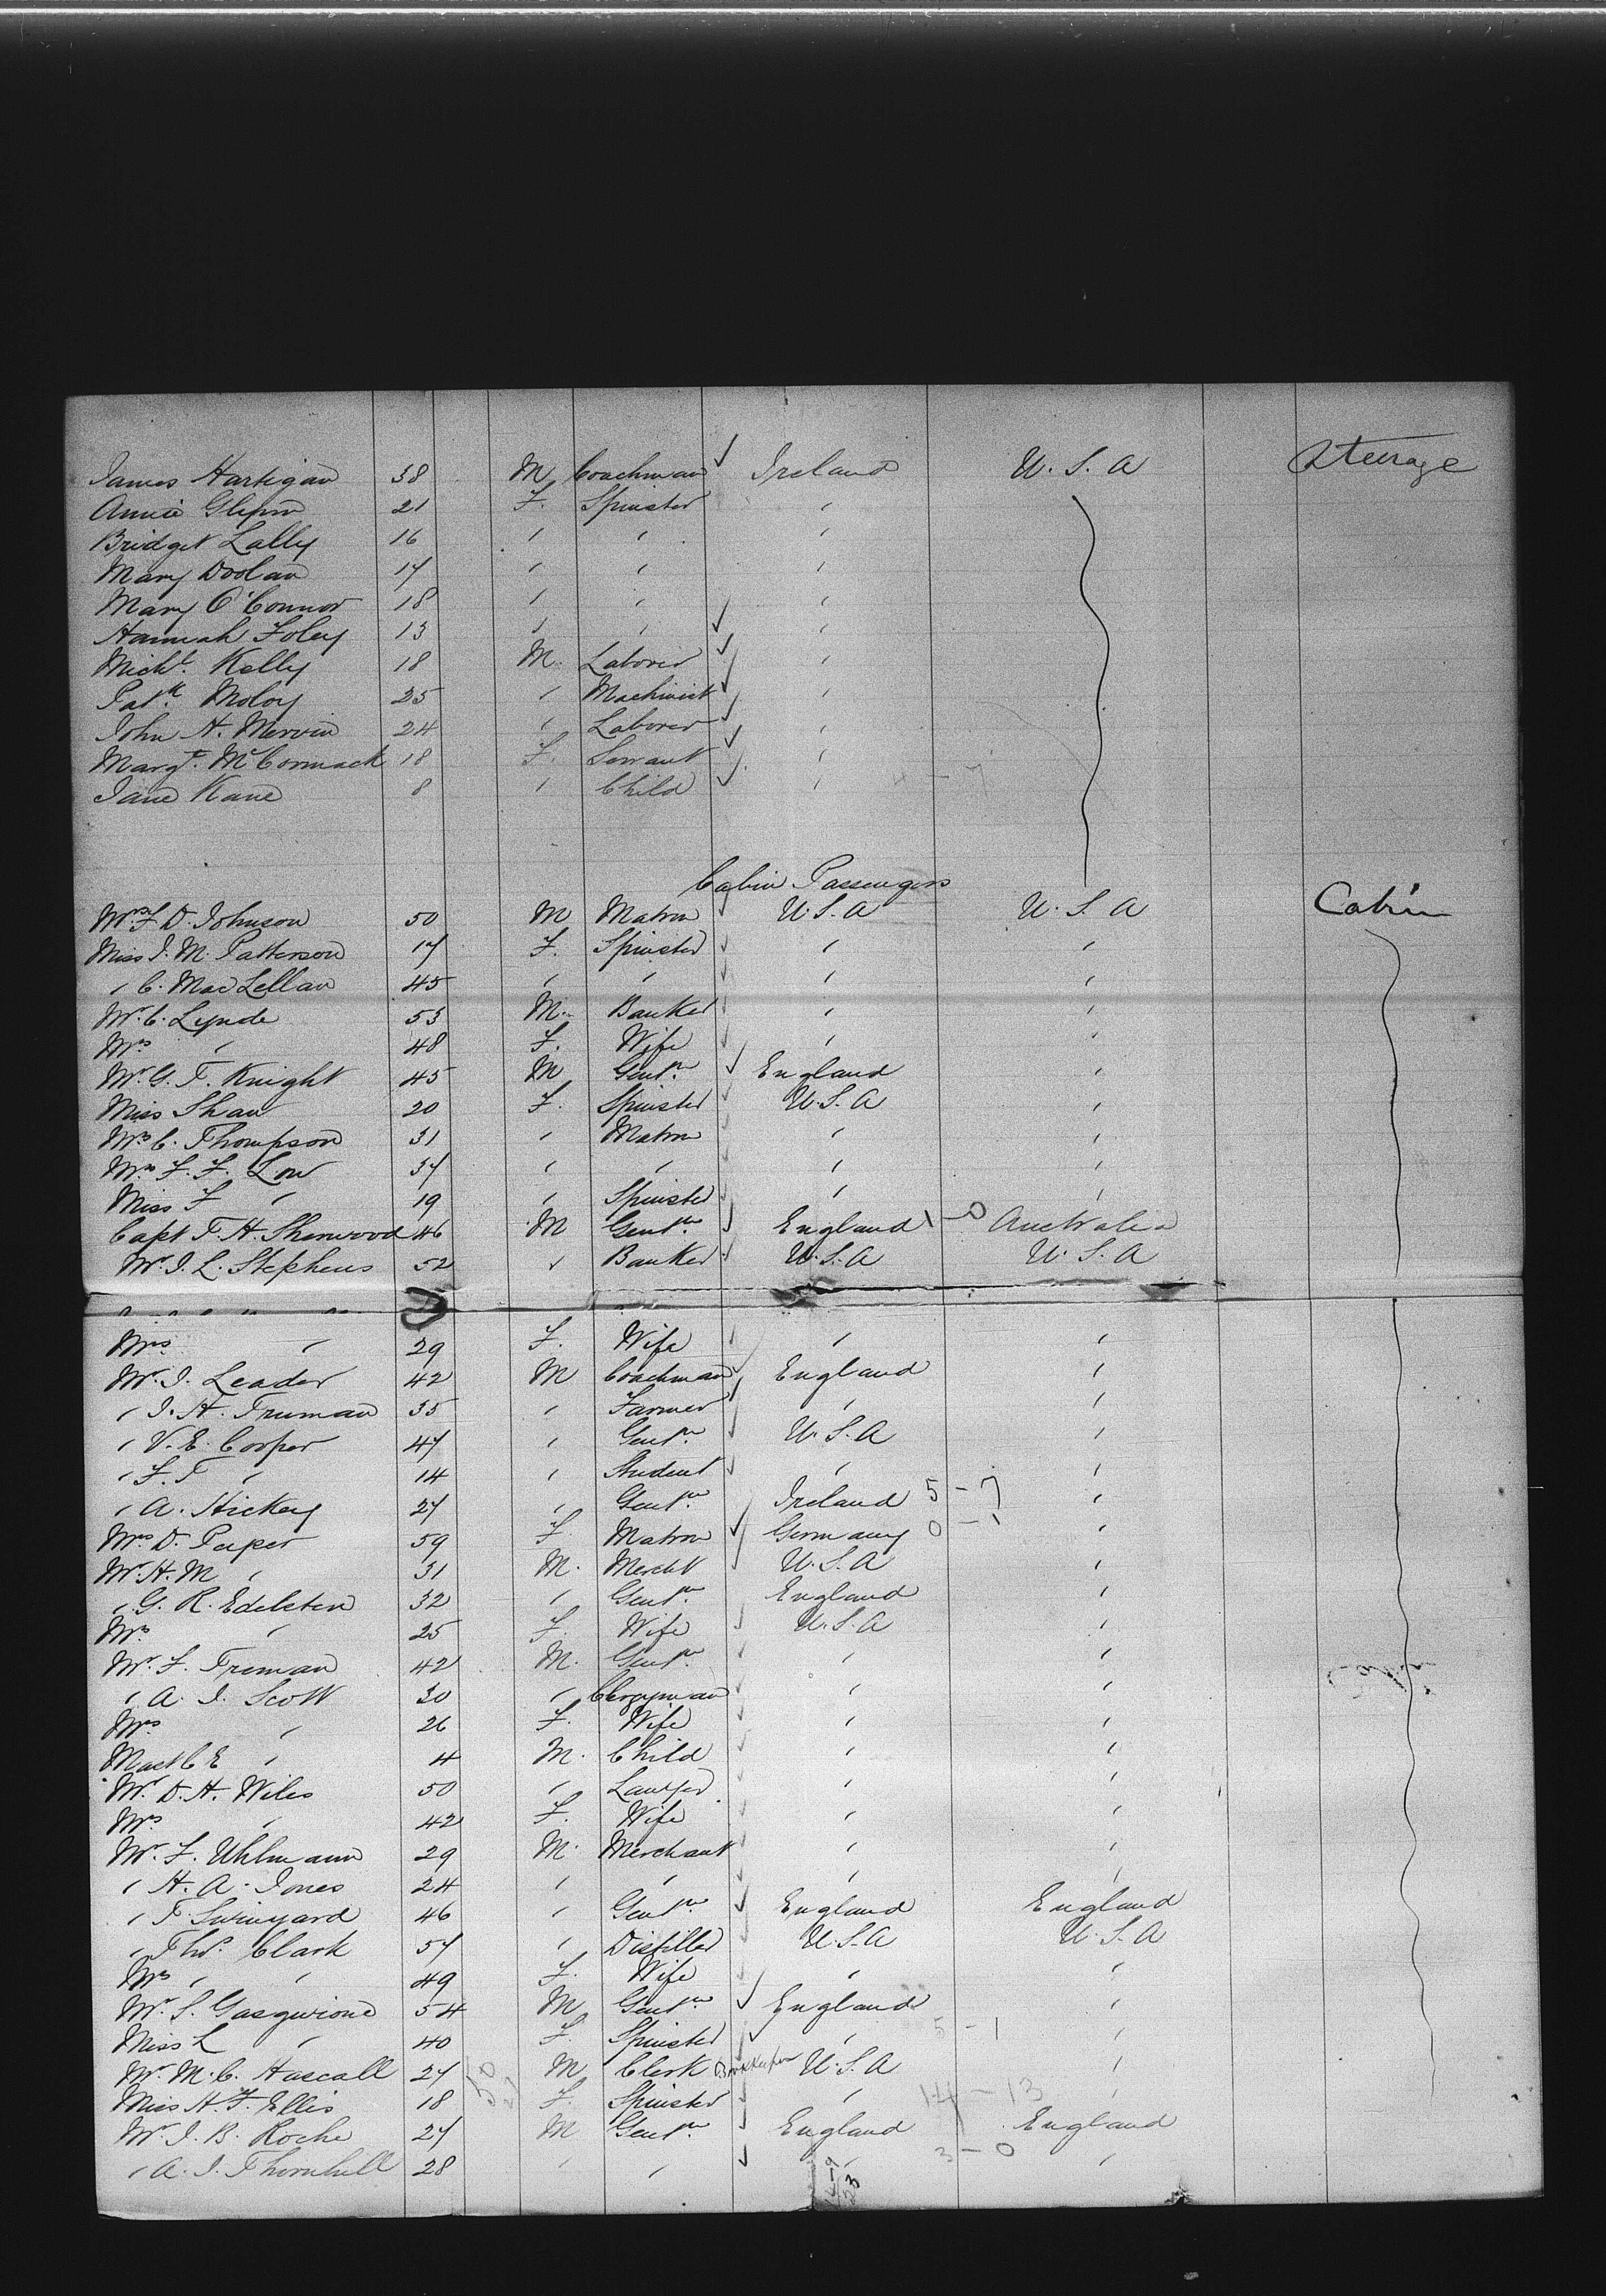 James Hartigan 38 M Coachman Ireland U.S.A Steerage
Annie Glynn 21 F. Spinster "
Bridget Lally 16 " " "
Mary Doolan 17 " " "
Mary O'Connor 18 " " "
Hannah Foley 13 " " "
Michl. Kelly 18 M. Laborer "
Patk. Moloy 25 " Machinist "
John H. Mervin 24 " Laborer "
Margt. McCormack 18 F. Servant "
Jane Kane 8 " Child " 4 - 7
Cabin Passengers
Mrs F D. Johnson 50 M Matron U.S.A U.S.A Cabin
Miss J. M. Patterson 17 F. Spinster " "
" C. MacLellan 45 " " " "
Mr. C. Lynde 53 M. Banker " "
Mrs " 48 F. Wife " "
Mr. G. F. Knight 45 M Gentn. England "
Miss Shaw 20 F. Spinster U.S.A "
Mrs C. Thompson 31 " Matron " "
Mrs F. F. Low 37 " " " "
Miss F " 19 " Spinster " "
Capt F. H. Sherwood 46 M Gentn England 1 - 0 Australia
Mr. J. L. Stephens 52 " Banker U.S.A U.S.A
Mrs " 29 F. Wife " "
Mr. J. Leader 42 M Coachman England "
" J. H. Truman 35 " Farmer " "
" V. E. Cooper 47 " Gentn. U.S.A "
" F. T " 14 " Student " "
" A. Hickey 27 " Gentn. Ireland 5 - 7 "
Mrs D. Paper 59 F Matron Germany 0 - 1 "
Mr. H. M " 31 M. Mercht U.S.A "
" G. R. Edelsten 32 " Gentn. England "
Mrs " 25 F. Wife U.S.A "
Mr. F. Freman 42 M. Gentn. " "
" A. J. Scott 30 " Clergyman " "
Mrs " 26 F. Wife " "
Mast C E " 4 M. Child " "
Mr. D. H. Wiles 50 " Lawyer " "
Mrs " 42 F. Wife " "
Mr. F. Uhlmann 29 M. Merchant " "
" H. A. Jones 24 " " " "
" F. Swinyard 46 " Gentn England England
" Thos. Clark 57 " Distiller U.S.A U.S.A
Mrs " " 49 F. Wife " "
Mr. S. Gasgwione 54 M Gentn England "
Miss L " 40 F. Spinster " 5 - 1 "
Mr. M. C. Hascall 27 M Clerk Bookkeeper U.S.A "
Miss H. F. Ellis 18 F. Spinster " 14 - 13 "
Mr. J. B. Roche 27 M Gentn. England England
" A. J. Thornhill 28 " " " 3 - 0 "
14-9
23